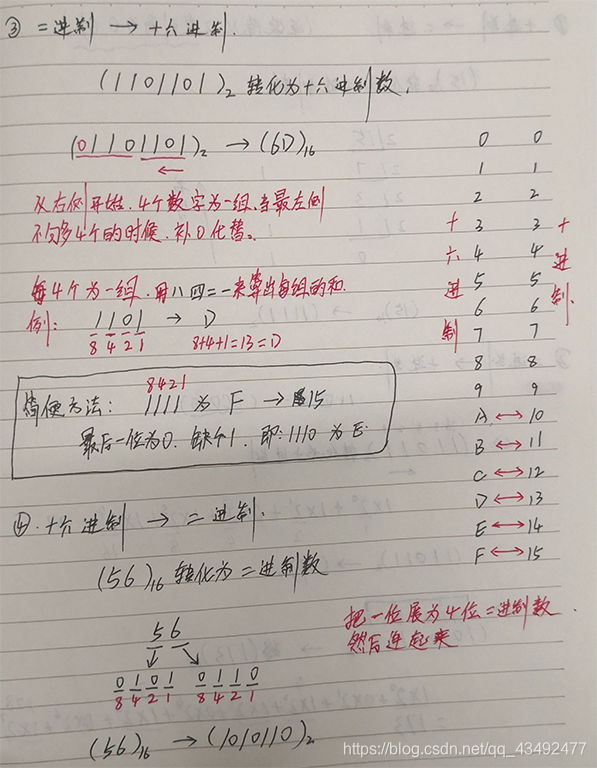 ③ 二进制 → 十六进制.
(1101101)₂ 转化为十六进制数.
(01101101)₂ → (6D)₁₆
←
从右侧开始, 4个数字为一组, 当最左侧
不够4个的时候, 补0代替。
每4个为一组, 用八四二一来算出每组的和.
例: 1101 → D
8 4 2 1 8+4+1=13=D
8421
简便方法: 1111 为 F → 15
最后一位为0, 缺个1, 即: 1110 为 E.
十六进制 十进制.
0 0
1 1
2 2
3 3
4 4
5 5
6 6
7 7
8 8
9 9
A ↔ 10
B ↔ 11
C ↔ 12
D ↔ 13
E ↔ 14
F ↔ 15
④. 十六进制 → 二进制.
(56)₁₆ 转化为二进制数
56
0101 0110
8421 8421
把一位展为4位二进制数.
然后连起来
(56)₁₆ → (1010110)₂
https://blog.csdn.net/qq_43492477